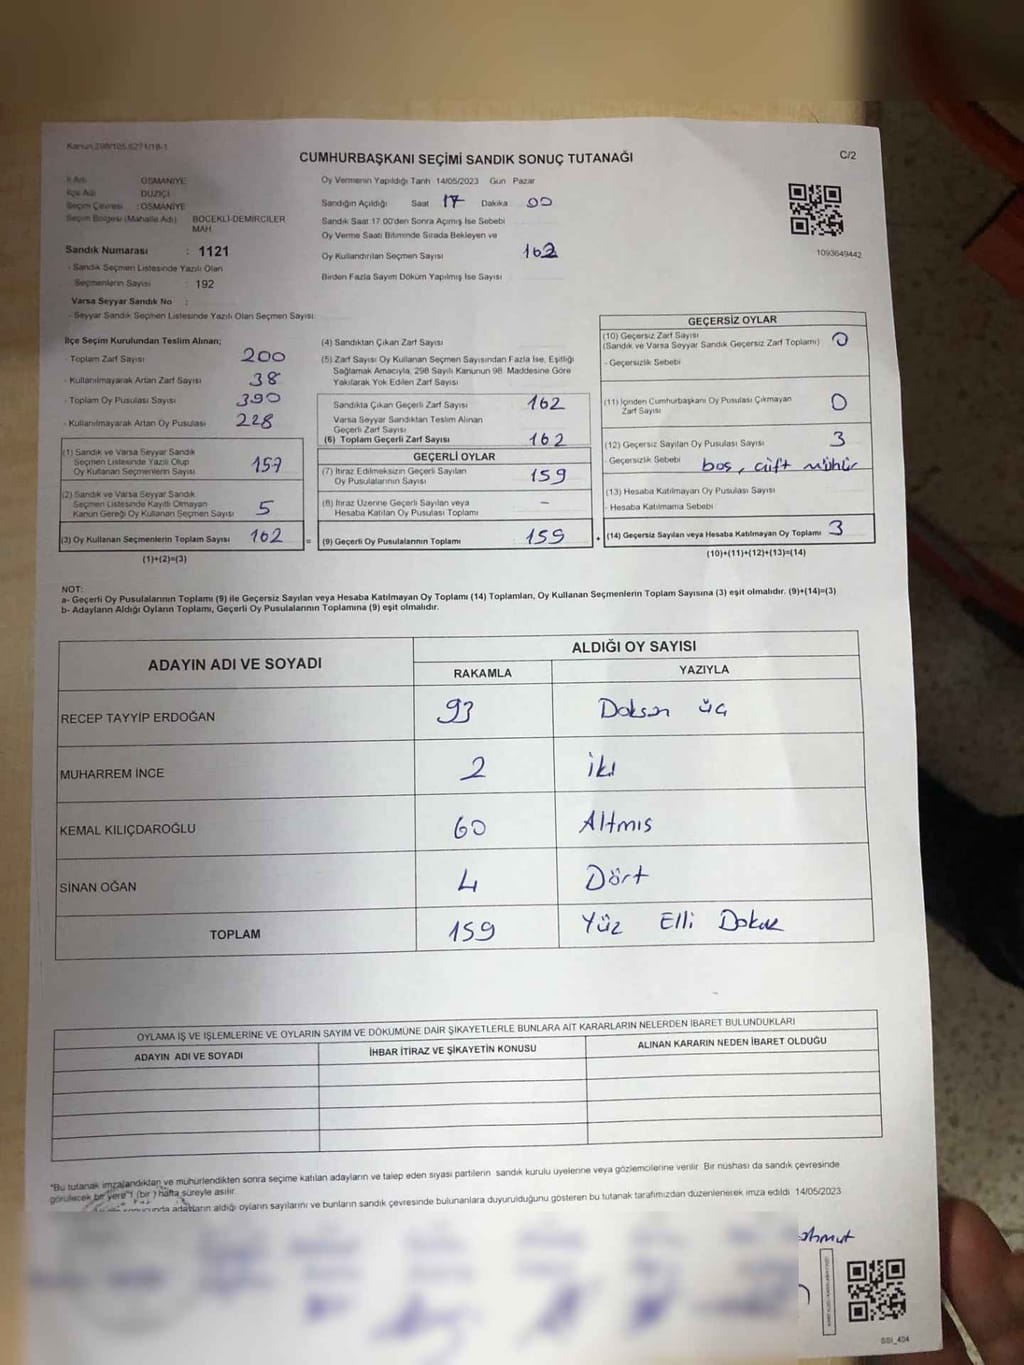 Kanun 298/105,6271/18-1
CUMHURBAŞKANI SEÇİMİ SANDIK SONUÇ TUTANAĞI
C/2
İl Adı : OSMANİYE
İlçe Adı : DÜZİÇİ
Seçim Çevresi : OSMANİYE
Seçim Bölgesi (Mahalle Adı) : BÖCEKLİ-DEMİRCİLER MAH.
Sandık Numarası : 1121
- Sandık Seçmen Listesinde Yazılı Olan
Seçmenlerin Sayısı : 192
Varsa Seyyar Sandık No :
- Seyyar Sandık Seçmen Listesinde Yazılı Olan Seçmen Sayısı:
Oy Vermenin Yapıldığı Tarih 14/05/2023 Gün Pazar
Sandığın Açıldığı Saat 17 Dakika 00
Sandık Saat 17.00'den Sonra Açılmış İse Sebebi
Oy Verme Saati Bitiminde Sırada Bekleyen ve
Oy Kullandırılan Seçmen Sayısı 162
Birden Fazla Sayım Döküm Yapılmış İse Sayısı
1093649442
İlçe Seçim Kurulundan Teslim Alınan;
- Toplam Zarf Sayısı 200
- Kullanılmayarak Artan Zarf Sayısı 38
- Toplam Oy Pusulası Sayısı 390
- Kullanılmayarak Artan Oy Pusulası 228
(1) Sandık ve Varsa Seyyar Sandık
Seçmen Listesinde Yazılı Olup
Oy Kullanan Seçmenlerin Sayısı 157
(2) Sandık ve Varsa Seyyar Sandık
Seçmen Listesinde Kayıtlı Olmayan
Kanun Gereği Oy Kullanan Seçmen Sayısı 5
(3) Oy Kullanan Seçmenlerin Toplam Sayısı 162
(1)+(2)=(3)
(4) Sandıktan Çıkan Zarf Sayısı
(5) Zarf Sayısı Oy Kullanan Seçmen Sayısından Fazla İse, Eşitliği
Sağlamak Amacıyla, 298 Sayılı Kanunun 98. Maddesine Göre
Yakılarak Yok Edilen Zarf Sayısı
Sandıkta Çıkan Geçerli Zarf Sayısı 162
Varsa Seyyar Sandıktan Teslim Alınan
Geçerli Zarf Sayısı
(6) Toplam Geçerli Zarf Sayısı 162
GEÇERLİ OYLAR
(7) İtiraz Edilmeksizin Geçerli Sayılan
Oy Pusulalarının Sayısı 159
(8) İtiraz Üzerine Geçerli Sayılan veya
Hesaba Katılan Oy Pusulası Toplamı -
= (9) Geçerli Oy Pusulalarının Toplamı 159
GEÇERSİZ OYLAR
(10) Geçersiz Zarf Sayısı
(Sandık ve Varsa Seyyar Sandık Geçersiz Zarf Toplamı) 0
- Geçersizlik Sebebi
(11) İçinden Cumhurbaşkanı Oy Pusulası Çıkmayan
Zarf Sayısı 0
(12) Geçersiz Sayılan Oy Pusulası Sayısı 3
- Geçersizlik Sebebi boş, çift mühür
(13) Hesaba Katılmayan Oy Pusulası Sayısı
- Hesaba Katılmama Sebebi
+ (14) Geçersiz Sayılan veya Hesaba Katılmayan Oy Toplamı 3
(10)+(11)+(12)+(13)=(14)
NOT:
a- Geçerli Oy Pusulalarının Toplamı (9) ile Geçersiz Sayılan veya Hesaba Katılmayan Oy Toplamı (14) Toplamları, Oy Kullanan Seçmenlerin Toplam Sayısına (3) eşit olmalıdır. (9)+(14)=(3)
b- Adayların Aldığı Oyların Toplamı, Geçerli Oy Pusulalarının Toplamına (9) eşit olmalıdır.
ADAYIN ADI VE SOYADI
ALDIĞI OY SAYISI
RAKAMLA YAZIYLA
RECEP TAYYİP ERDOĞAN 93 Doksan üç
MUHARREM İNCE 2 İki
KEMAL KILIÇDAROĞLU 60 Altmış
SİNAN OĞAN 4 Dört
TOPLAM 159 Yüz Elli Dokuz
OYLAMA İŞ VE İŞLEMLERİNE VE OYLARIN SAYIM VE DÖKÜMÜNE DAİR ŞİKAYETLERLE BUNLARA AİT KARARLARIN NELERDEN İBARET BULUNDUKLARI
ADAYIN ADI VE SOYADI İHBAR İTİRAZ VE ŞİKAYETİN KONUSU ALINAN KARARIN NEDEN İBARET OLDUĞU
"Bu tutanak imzalandıktan ve mühürlendikten sonra seçime katılan adayların ve talep eden siyasi partilerin sandık kurulu üyelerine veya gözlemcilerine verilir. Bir nüshası da sandık çevresinde
görülecek bir yere "1 (bir) hafta süreyle asılır.
adayların aldığı oyların sayılarını ve bunların sandık çevresinde bulunanlara duyurulduğunu gösteren bu tutanak tarafımızdan düzenlenerek imza edildi. 14/05/2023
SSI_404